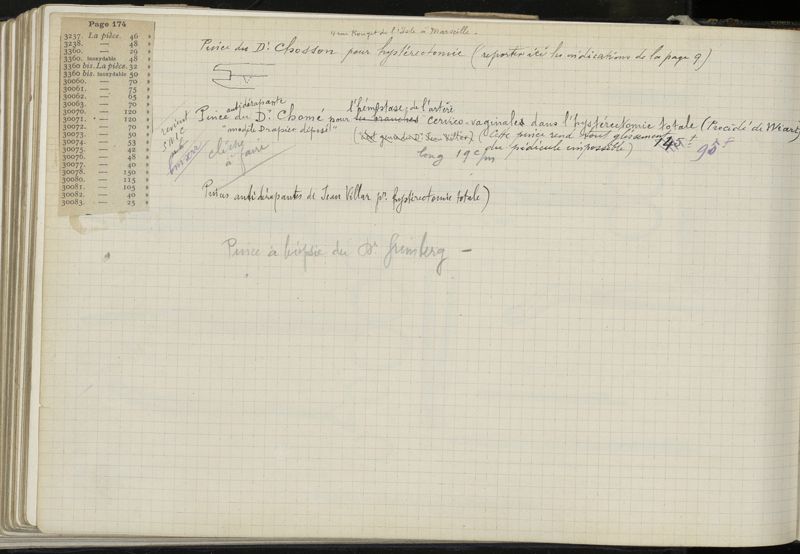 Page 174
3237. La pièce. 46 »
3238. — 48 »
3360. — 29 »
3360. inoxydable 48 »
3360 bis. La pièce. 32 »
3360 bis. inoxydable 50 »
30060. — 70 »
30061. — 75 »
30062. — 65 »
30063. — 70 »
30070. — 120 »
30071. — 120 »
30072. — 70 »
30073. — 50 »
30074. — 53 »
30075. — 42 »
30076. — 48 »
30077. — 40 »
30078. — 150 »
30080. — 115 »
30081. — 105 »
30082. — 40 »
30083. — 25 »
4 rue Rouget de l'Isle à Marseille.
Pince du Dr Chosson pour hystérectomie (reporter ici les indications de la page 9)
antidérapante l'hémostase de l'artère
Pince du Dr Chomé pour les branches cervico-vaginales dans l'hystérectomie totale (Procédé de Wiart)
"modèle Drapier déposé" (Dr Jean Villar) (Cette pince rend tout glissement
du pédicule impossible) 145 f 95 f
revient
cliché
à faire
long 19 cm
Pinces antidérapantes de Jean Villar pr hystérectomie totale)
Pince à biopsie du Dr Grimberg —